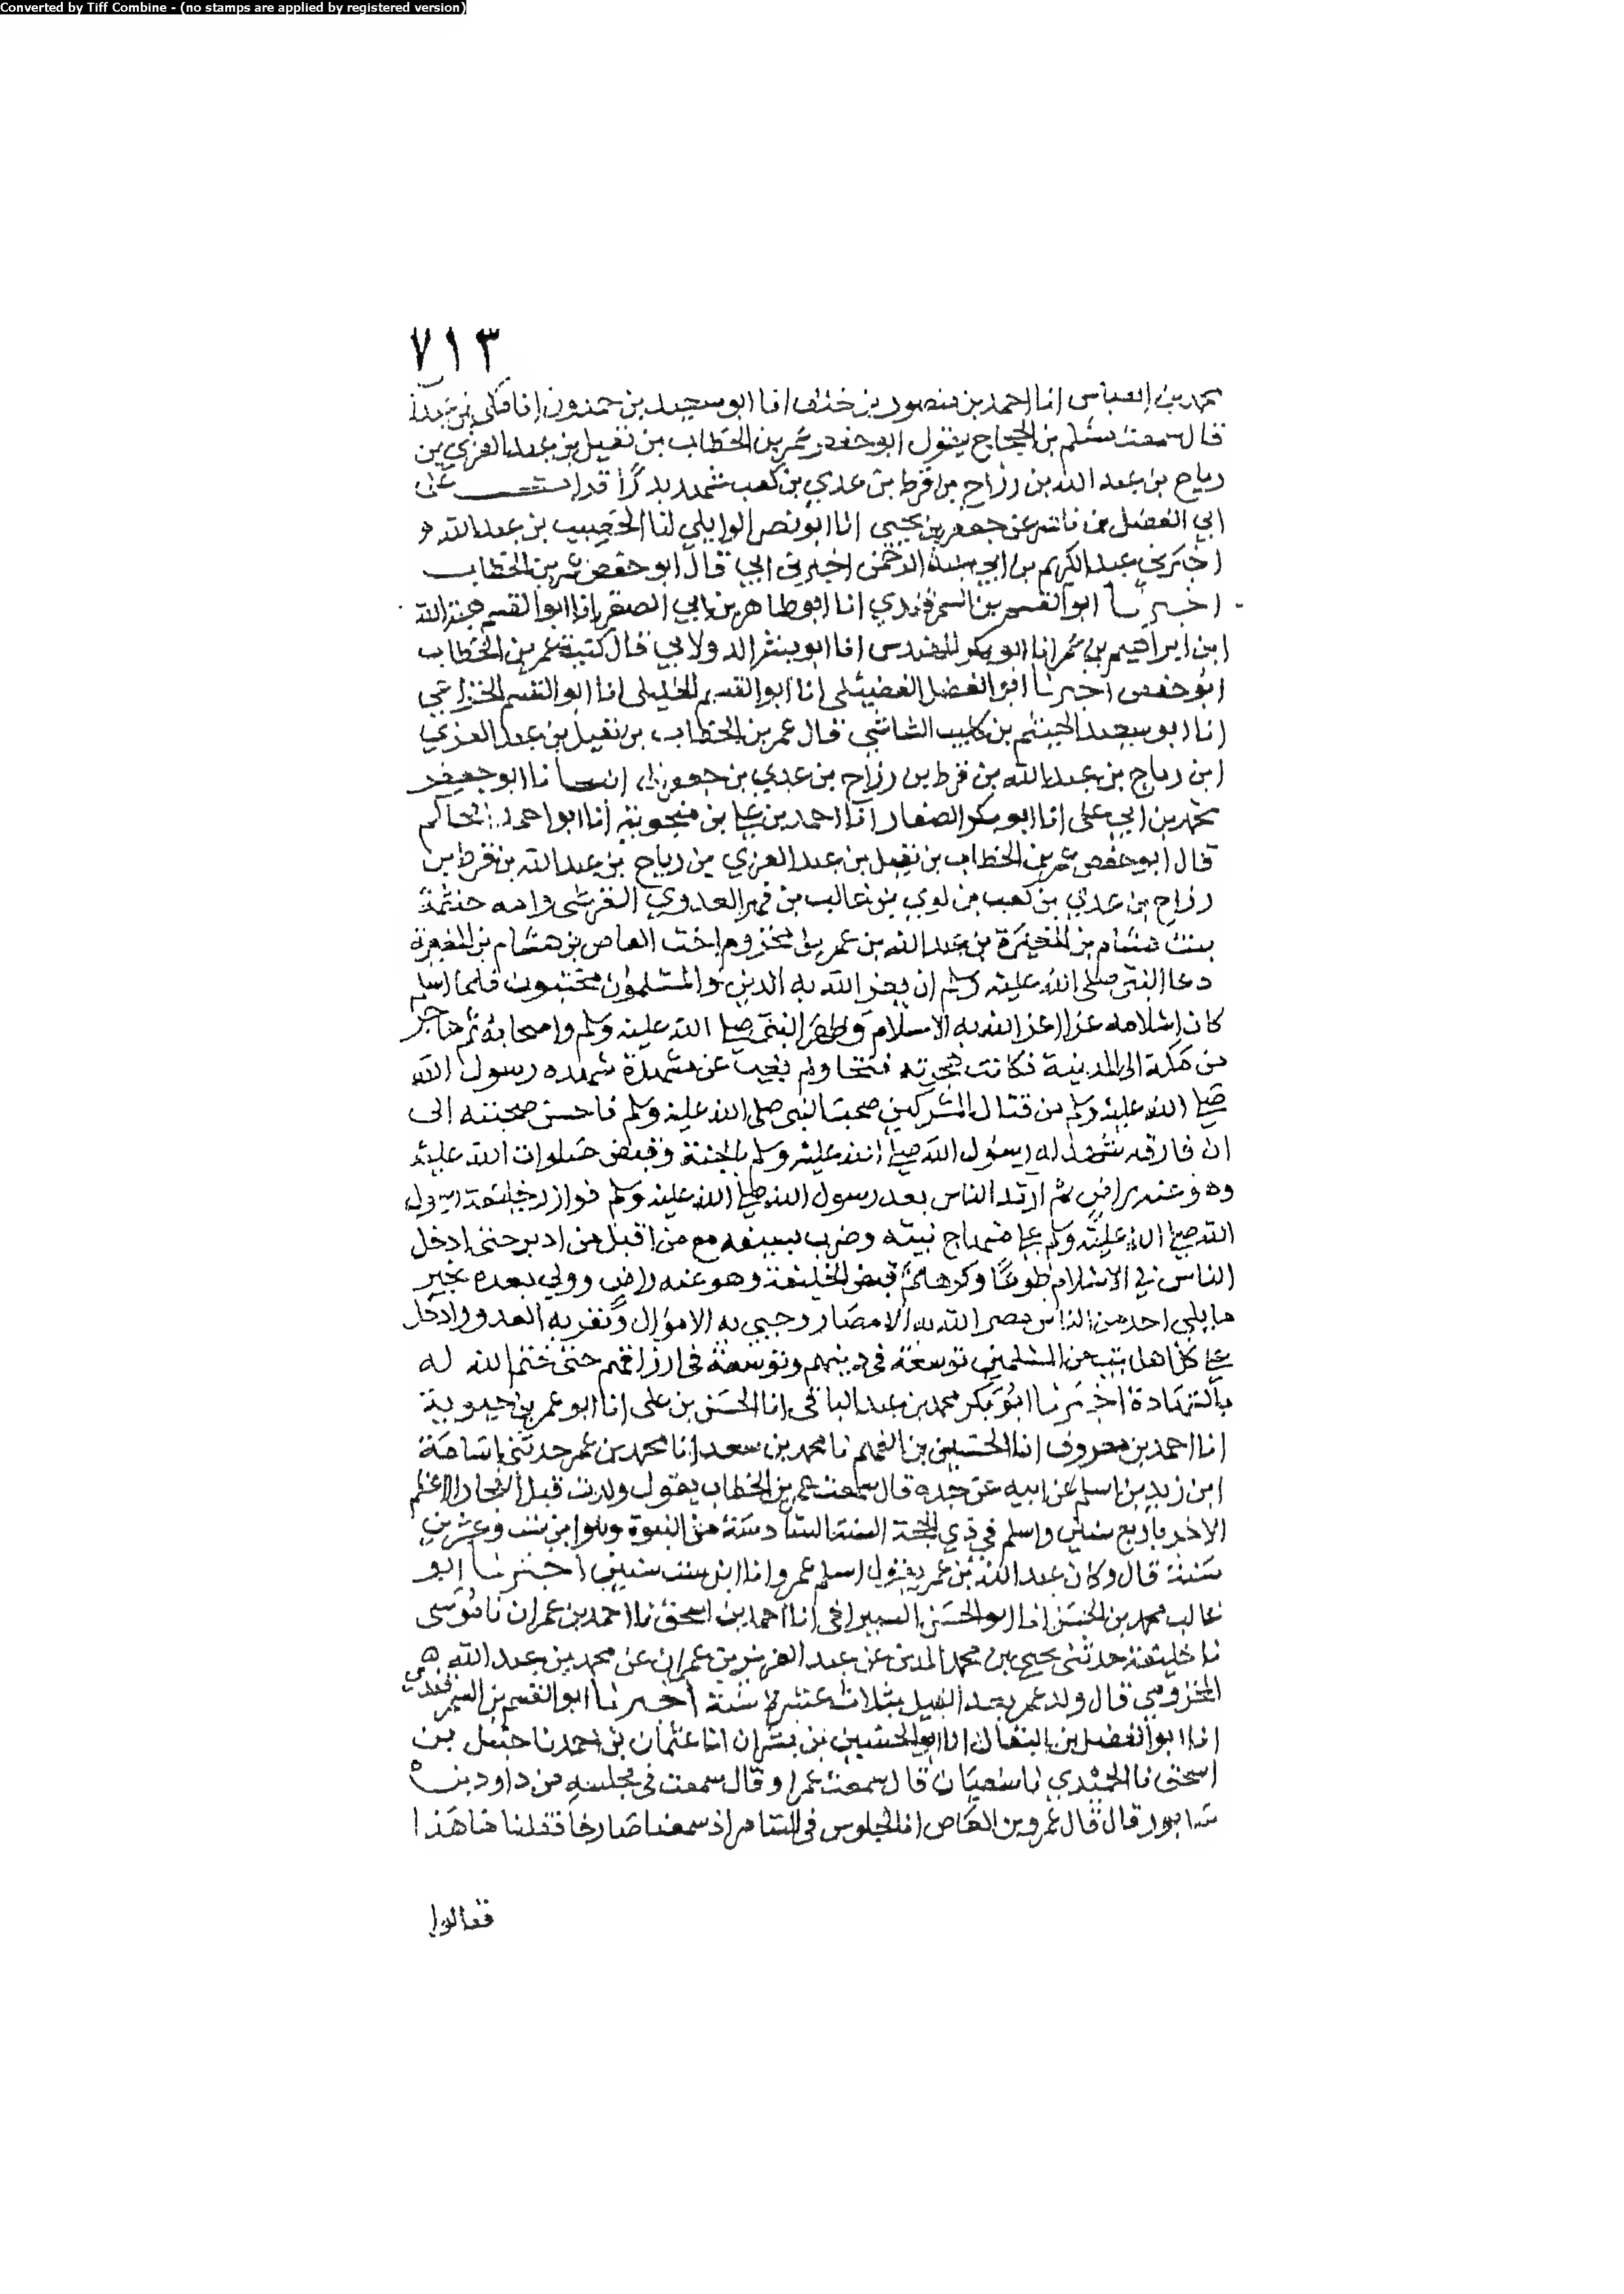 Converted by Tiff Combine - (no stamps are applied by registered version)
٧١٣
محمد بن العباس انا احمد بن منصور بن خلف انا ابو سعيد بن حمدون انا مكي بن عبدان
قال سمعت مسلم بن الحجاج يقول ابو حفص عمر بن الخطاب بن نفيل بن عبد العزي بن
رياح بن عبد الله بن رزاح بن قرط بن عدي بن كعب شهد بدرًا قرات على
ابي الفضل بن ناصر عن جعفر بن يحيى انا ابو نصر الوايلي انا الخصيب بن عبد الله
اخبرني عبد الكريم بن ابي عبد الرحمن اخبرني ابي قال ابو حفص عمر بن الخطاب
اخبرنا ابو القسم بن السمرقندي انا ابو طاهر بن ابي الصقر انا ابو القسم هبة الله
ابن ابراهيم بن عمر انا ابو بكر المهندس انا ابو بشر الدولابي قال كنية عمر بن الخطاب
ابو حفص اخبرنا ابو الفضل الفضيلي انا ابو القسم الخليلي انا ابو القسم الخزاعي
انا ابو سعيد الهيثم بن كليب الشاشي قال عمر بن الخطاب بن نفيل بن عبد العزي
ابن رياح بن عبد الله بن قرط بن رزاح بن عدي بن انبانا ابو جعفر
محمد بن ابي على انا ابو بكر الصفار انا احمد بن علي بن منجويه انا ابو احمد الحاكم
قال ابو حفص عمر بن الخطاب بن نفيل بن عبد العزي بن رياح بن عبد الله بن قرط بن
رزاح بن عدي بن كعب بن لوي بن غالب بن فهر العدوي القرشي وامه حنتمة
بنت هشام بن المغيرة بن عبد الله بن عمر بن مخزوم اخت العاص بن هشام بن المغيرة
دعا النبي صلى الله عليه وسلم ان يعز الله به الدين والمسلمون مختبون فلما اسلم
كان اسلامه عزا اعز الله به الاسلام وظهر النبي صلى الله عليه وسلم واصحابه ثم هاجر
من مكة الى المدينة فكانت هجرته فتحا ولم يغب عن مشهد شهده رسول الله
صلى الله عليه وسلم من قتال المشركين صحب النبي صلى الله عليه وسلم فاحسن صحبته الى
ان فارقه شهد له رسول الله صلى الله عليه وسلم بالجنة وقبض صلوات الله عليه
وهو عنه راض ثم ارتد الناس بعد رسول الله صلى الله عليه وسلم فوازر خليفة رسول
الله صلى الله عليه وسلم على منهاج نبيه وضرب بسيفه مع من اقبل من ادبر حتى ادخل
الناس في الاسلام طوعًا وكرها ثم قبض الخليفة وهو عنه راض وولي بعده بخير
ما يلي احد من الناس مصر الله به الامصار وجبي به الاموال ونفى به العدو وادخل
على كل اهل بيت من المسلمين توسعة في دينهم وتوسعة في ارزاقهم حتى ختم الله له
بالشهادة اخبرنا ابو بكر محمد بن عبد الباقي انا الحسن بن على انا ابو عمر بن حيويه
انا احمد بن معروف انا الحسين بن الفهم نا محمد بن سعد انا محمد بن عمر حدثني اسامة
ابن زيد بن اسلم عن ابيه عن جده قال سمعت عمر بن الخطاب يقول ولدت قبل الفجار الاعظم
الاخر باربع سنين واسلم في ذي الحجة السنة السادسة من النبوة وهو ابن ست وعشرين
سنة قال وكان عبد الله بن عمر يقول اسلم عمر وانا ابن ست سنين اخبرنا ابو
غالب محمد بن الحسن انا ابو الحسن السيرافي انا احمد بن اسحق نا احمد بن عمران نا موسى
نا خليفة حدثني يحيى بن محمد المدني عن عبد العزيز بن عمران عن محمد بن عبد الله
المخزومي قال ولد عمر بعد الفيل بثلاث عشرة سنة اخبرنا ابو القسم بن السمرقندي
انا ابو الفضل بن البقال انا ابو الحسين بن بشران انا عثمان بن احمد نا حنبل بن
اسحق نا الحميدي نا سفيان قال سمعت عمرا وقال سمعت في مجلسه من داود بن
شابور قال قال عمرو بن العاص انا لجلوس في الشام اذ سمعنا صارخا فقلنا ما هذا
فقالوا